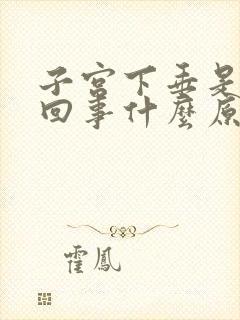 子宮下垂是
回事什麼原
霍鳳